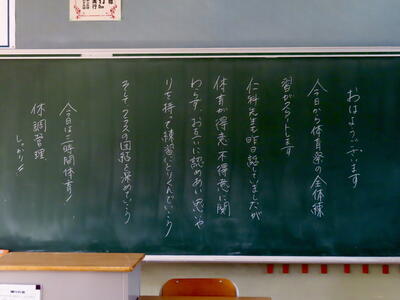 おはようございます
今日から体育祭の全体練
習がスタートします
仁科先生も昨日話していましたが
体育が得意不得意に関
わらず、お互いに認めあい思いや
りを持って練習にとりくんでいこう
そしてクラスの団結を深めていこう
今日は二時間体育!!
体調管理
しっかり!!